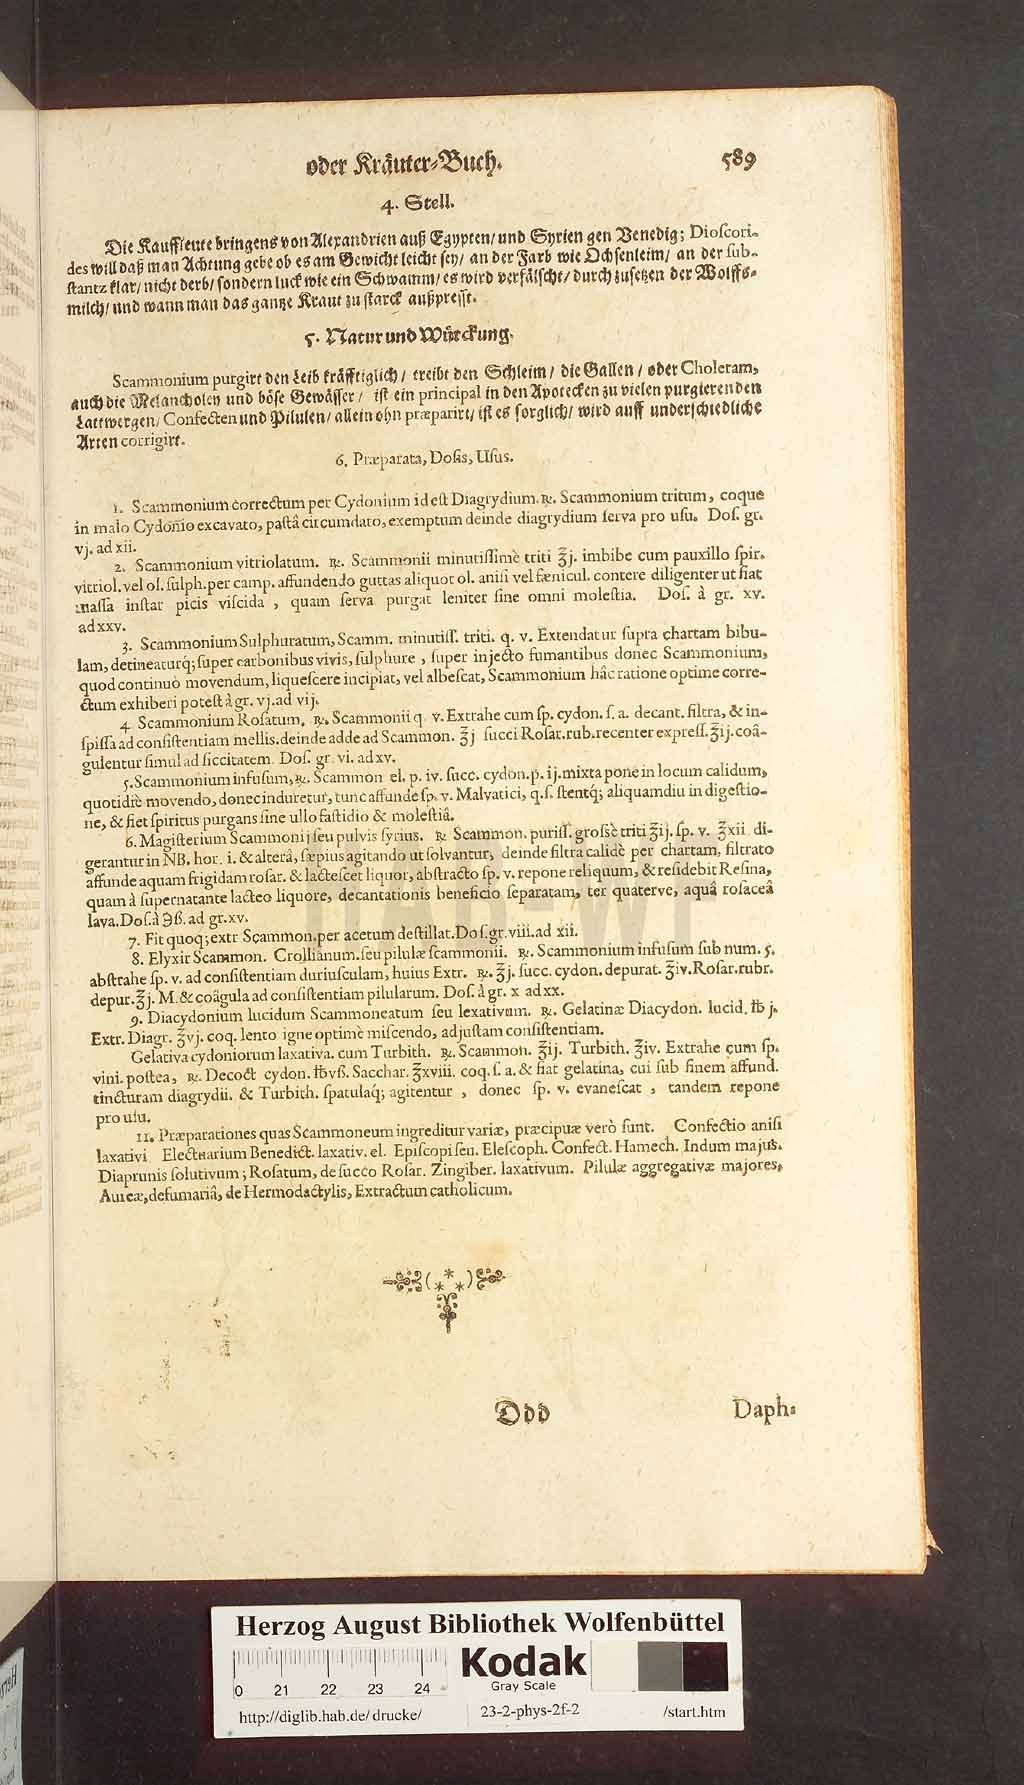 oder Kräuter-Buch. 589
4. Stell.
Die Kauffleute bringens von Alexandrien auß Egypten/ und Syrien gen Venedig; Dioſcori-
des will daß man Achtung gebe ob es am Gewicht leicht ſey/ an der Farb wie Ochſenleim/ an der ſub-
ſtantz klar/ nicht derb/ ſondern luck wie ein Schwamm/ es wird verfälſcht/ durch zuſetzen der Wolffs-
milch/ und wann man das gantze Kraut zu ſtarck außpreſſt.
5. Natur und Würckung.
Scammonium purgirt den Leib kräfftiglich/ treibt den Schleim/ die Gallen/ oder Choleram,
auch die Melancholey und böſe Gewäſſer/ iſt ein principal in den Apotecken zu vielen purgierenden
Lattwergen/ Confecten und Pilulen/ allein ohn præparirt/ iſt es ſorglich/ wird auff underſchiedliche
Arten corrigirt.
6. Præparata, Doſis, Uſus.
1. Scammonium correctum per Cydonium id eſt Diagrydium. ℞. Scammonium tritum, coque
in malo Cydonio excavato, paſtâ circumdato, exemptum deinde diagrydium ſerva pro uſu. Doſ. gr.
vj. ad xii.
2. Scammonium vitriolatum. ℞. Scammonii minutiſſimè triti ʒj. imbibe cum pauxillo ſpir.
vitriol. vel ol. ſulph. per camp. affundendo guttas aliquot ol. aniſi vel fænicul. contere diligenter ut fiat
maſſa inſtar picis viſcida, quam ſerva purgat leniter ſine omni moleſtia. Doſ. à gr. xv.
ad xxv.
3. Scammonium Sulphuratum, Scamm. minutiſſ. triti. q. v. Extendatur ſupra chartam bibu-
lam, detineaturq́; ſuper carbonibus vivis, ſulphure, ſuper injecto fumantibus donec Scammonium,
quod continuò movendum, liqueſcere incipiat, vel albeſcat, Scammonium hâc ratione optime corre-
ctum exhiberi poteſt à gr. vj. ad vij.
4. Scammonium Roſatum. ℞. Scammonii q v. Extrahe cum ſp. cydon. ſ. a. decant. filtra, & in-
ſpiſſa ad conſiſtentiam mellis. deinde adde ad Scammon. ʒj ſucci Roſar. rub. recenter expreſſ. ʒij. coâ-
gulentur ſimul ad ſiccitatem. Doſ. gr. vi. ad xv.
5. Scammonium infuſum, ℞. Scammon el. p. iv. ſucc. cydon. p. ij. mixta pone in locum calidum,
quotidie movendo, donec induretur, tunc affunde ſp. v. Malvatici, q. ſ. ſtentq́; aliquamdiu in digeſtio-
ne, & fiet ſpiritus purgans ſine ullo faſtidio & moleſtiâ.
6. Magiſterium Scammonij ſeu pulvis ſyrius. ℞ Scammon. puriſſ. groſsè triti ʒij. ſp. v. ʒxii di-
gerantur in NB. hor. i. & alterâ, ſæpius agitando ut ſolvantur, deinde filtra calidè per chartam, filtrato
affunde aquam frigidam roſar. & lacteſcet liquor, abſtracto ſp. v. repone reliquum, & reſidebit Reſina,
quam à ſupernatante lacteo liquore, decantationis beneficio ſeparatam, ter quaterve, aquâ roſaceâ
lava. Doſ. à ℈ß. ad gr. xv.
7. Fit quoq; extr Scammon. per acetum deſtillat. Doſ. gr. viii. ad xii.
8. Elyxir Scammon. Crollianum. ſeu pilulæ ſcammonii. ℞. Scammonium infuſum ſub num. 5.
abſtrahe ſp. v. ad conſiſtentiam duriuſculam, huius Extr. ℞. ʒj. ſucc. cydon. depurat. ʒiv. Roſar. rubr.
depur. ʒj. M. & coâgula ad conſiſtentiam pilularum. Doſ. à gr. x ad xx.
9. Diacydonium lucidum Scammoneatum ſeu lexativum. ℞. Gelatinæ Diacydon. lucid. ℔ j.
Extr. Diagr. ʒvj. coq. lento igne optimè miſcendo, adjuſtam conſiſtentiam.
Gelativa cydoniorum laxativa. cum Turbith. ℞. Scammon. ʒij. Turbith. ʒiv. Extrahe cum ſp.
vini. poſtea, ℞. Decoct cydon. ℔vß. Sacchar. ʒxviii. coq. ſ. a. & fiat gelatina, cui ſub finem affund.
tincturam diagrydii. & Turbith. ſpatulaq́; agitentur, donec ſp. v. evaneſcat, tandem repone
pro uſu.
11. Præparationes quas Scammoneum ingreditur variæ, præcipuæ verò ſunt. Confectio aniſi
laxativi Electuarium Benedict. laxativ. el. Epiſcopi ſeu. Eleſcoph. Confect. Hamech. Indum majus.
Diaprunis ſolutivum; Roſatum, de ſucco Roſar. Zingiber. laxativum. Pilulæ aggregativæ majores,
Aureæ, defumariâ, de Hermodactylis, Extractum catholicum.
Ddd Daph-
HAB-WF
Herzog August Bibliothek Wolfenbüttel
Kodak
Gray Scale
0 21 22 23 24
http://diglib.hab.de/drucke/ 23-2-phys-2f-2 /start.htm